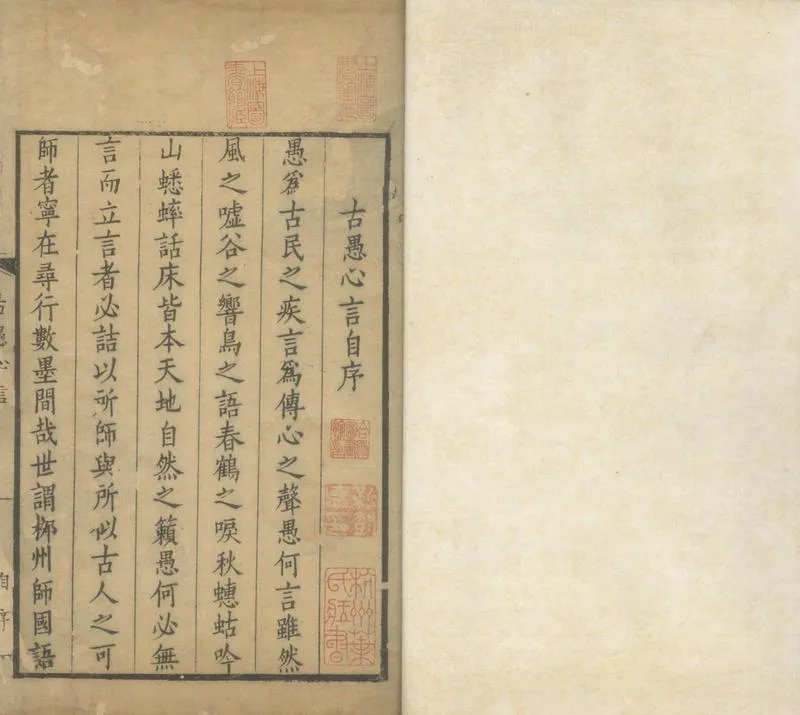 古愚心言自序
愚爲古民之疾言爲傳心之聲愚何言雖然
風之嘘谷之響鳥之語春鶴之唳秋蟪蛄吟
山蟋蟀話床皆本天地自然之籟愚何必無
言而立言者必詰以所師與所似古人之可
師者寧在尋行數墨間哉世謂栁州師國語
古愚心言
自序
一
上海圖書館藏
杭州葉氏藏書